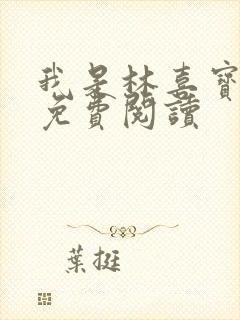 我是林喜寶
免費閱讀
葉挺